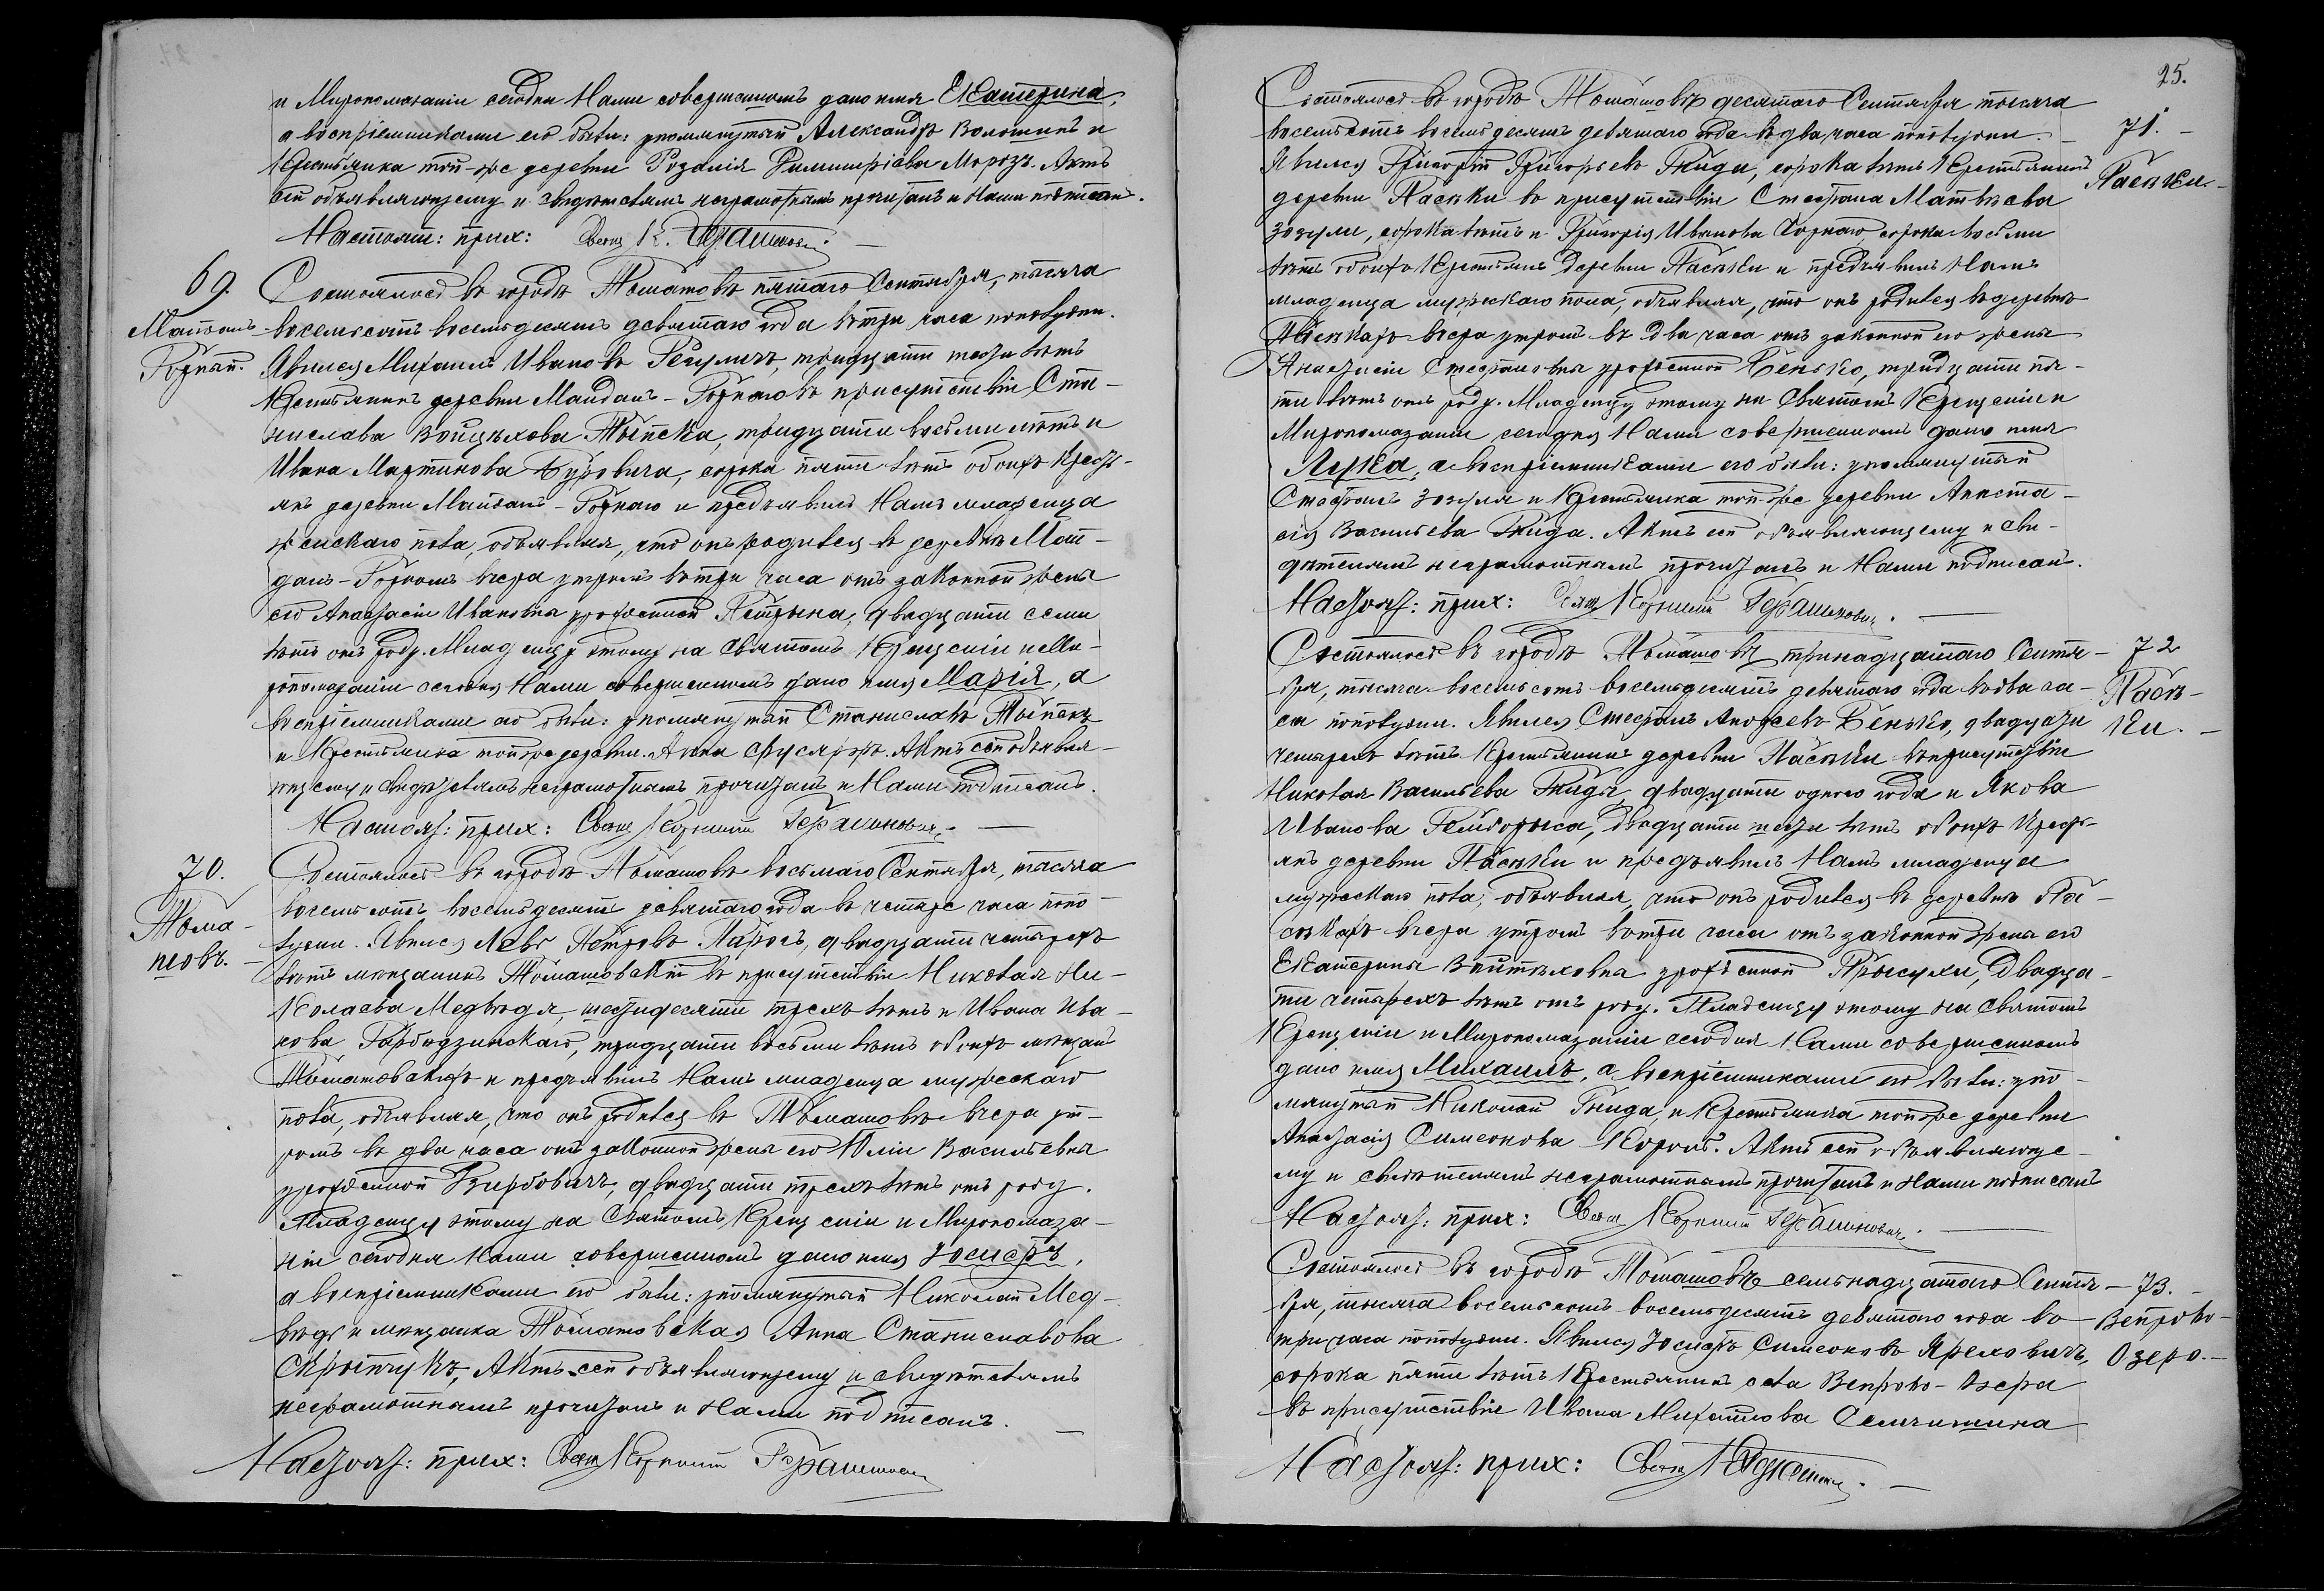 и Миропомазаніи сегодня Нами совершенномъ дано имя Екатерина,
а воспріемниками его были: упомянутый Александръ Волошинъ и
Крестьянка той-же деревни Розалія Димитріева Морозъ. Актъ
сей объявляющему и свидѣтелямъ неграмотнымъ прочитанъ и Нами подписанъ.
Настоят: прих: Свящ К. Герашиновичъ.
69.
Майданъ
Горный.
Состоялось въ городѣ Томашовѣ пятаго Сентября, тысяча
восемьсотъ восемьдесятъ девятаго года въ три часа пополудни.
Явился Михаилъ Ивановъ Регулихъ, тридцати шести лѣтъ
Крестьянинъ деревни Майданъ-Горнаго въ присутствіи Ста-
нислава Войцѣхова Тыпека, тридцати восьми лѣтъ и
Ивана Мартинова Буховича, сорока пяти лѣтъ обоихъ Кресть-
янъ деревни Майданъ-Горнаго и предъявилъ Намъ младенца
женскаго пола, объявляя, что онъ родился въ деревнѣ Май-
данъ-Горномъ вчера утромъ въ три часа отъ законной жены
его Анастасіи Ивановны урожденной Петрына, двадцати семи
лѣтъ отъ роду. Младенцу этому на Святомъ Крещеніи и Ми-
ропомазаніи сегодня Нами совершенномъ дано имя Марія, а
воспріемниками его были: упомянутый Станиславъ Тыпекъ
и Крестьянка той же деревни Анна Фусяржъ. Актъ сей объявля-
ющему и свидѣтелямъ неграмотнымъ прочитанъ и Нами подписанъ.
Настоят: прих: Свящ Корнилій Герашиновичъ.
70.
Тома-
шовъ.
Состоялось въ городѣ Томашовѣ восьмаго Сентября, тысяча
восемьсотъ восемьдесятъ девятаго года въ четыре часа попо-
лудни. Явился Левъ Петровъ Пароль, двадцати четырехъ
лѣтъ мѣщанинъ Томашовскій въ присутствіи Николая Ни-
колаева Медвѣдя, шестидесяти трехъ лѣтъ и Ивана Ива-
нова Гарбодзинскаго, тридцати восьми лѣтъ обоихъ мѣщанъ
Томашовскихъ и предъявилъ Намъ младенца мужескаго
пола, объявляя, что онъ родился въ Томашовѣ вчера ут-
ромъ въ два часа отъ законной жены его Юліи Васильевны
урожденной Вирбовичъ, двадцати трехъ лѣтъ отъ роду.
Младенцу этому на Святомъ Крещеніи и Миропомаза-
ніи сегодня Нами совершенномъ дано имя Іосифъ,
а воспріемниками его были: упомянутый Николай Мед-
вѣдь и мѣщанка Томашовская Анна Станиславова
Скрыпчукъ. Актъ сей объявляющему и свидѣтелямъ
неграмотнымъ прочитанъ и Нами подписанъ.
Настоят: прих: Свящ Корнилій Герашиновичъ
25.
71.
Пасѣки.
Состоялось въ городѣ Томашовѣ десятаго Сентября тысяча
восемьсотъ восемьдесятъ девятаго года въ два часа пополудни.
Явился Григорій Григорьевъ Гнида, сорока лѣтъ Крестьянинъ
деревни Пасѣки въ присутствіи Стефана Матвѣева
Зозули, сорока лѣтъ и Григорія Иванова Чорнаго сорока восьми
лѣтъ обоихъ Крестьянъ деревни Пасѣки и предъявилъ Намъ
младенца мужескаго пола, объявляя, что онъ родился въ деревнѣ
Пасѣкахъ вчера утромъ въ два часа отъ законной его жены
Анастасіи Стефановны урожденной Бенько, тридцати пя-
ти лѣтъ отъ роду. Младенцу этому на Святомъ Крещеніи и
Миропомазаніи сегодня Нами совершенномъ дано имя
Лука, а воспріемниками его были: упомянутый
Стефанъ Зозуля и Крестьянка той-же деревни Анаста-
сія Васильева Гнида. Актъ сей объявляющему и сви-
дѣтелямъ неграмотнымъ прочитанъ и Нами подписанъ.
Настоят: прих: Свящ Корнилій Герашиновичъ.
72
Пасѣ-
ки.
Состоялось въ городѣ Томашовѣ тринадцатаго Сентя-
бря, тысяча восемьсотъ восемьдесятъ девятаго года въ два ча-
са пополудни. Явился Стефанъ Андреевъ Бенько, двадцати
четырехъ лѣтъ Крестьянинъ деревни Пасѣки въ присутствіи
Николая Васильева Гниды, двадцати одного года и Якова
Иванова Гелиборыса, двадцати шести лѣтъ обоихъ Кресть-
янъ деревни Пасѣки и предъявилъ Намъ младенца
мужескаго пола, объявляя, что онъ родился въ деревнѣ Па-
сѣкахъ вчера утромъ въ три часа отъ законной жены его
Екатерины Войтѣховны урожденной Прысухи, двадца-
ти четырехъ лѣтъ отъ роду. Младенцу этому на Святомъ
Крещеніи и Миропомазаніи сегодня Нами совершенномъ
дано имя Михаилъ, а воспріемниками его были: упо-
мянутый Николай Гнида, и Крестьянка той же деревни
Анастасія Симеонова Король. Актъ сей объявляюще-
му и свидѣтелямъ неграмотнымъ прочитанъ и Нами подписанъ
Настоят: прих: Свящ Корнилій Герашиновичъ.
73.
Вепрово-
Озеро.
Состоялось въ городѣ Томашовѣ семьнадцатаго Сентя-
бря, тысяча восемьсотъ восемьдесятъ девятаго года въ
три часа пополудни. Явился Іосифъ Симеоновъ Яреховичъ,
сорока пяти лѣтъ Крестьянинъ села Вепрово-Озера
въ присутствіи Ивана Михайлова Семчишина
Настоят: прих: Свящ